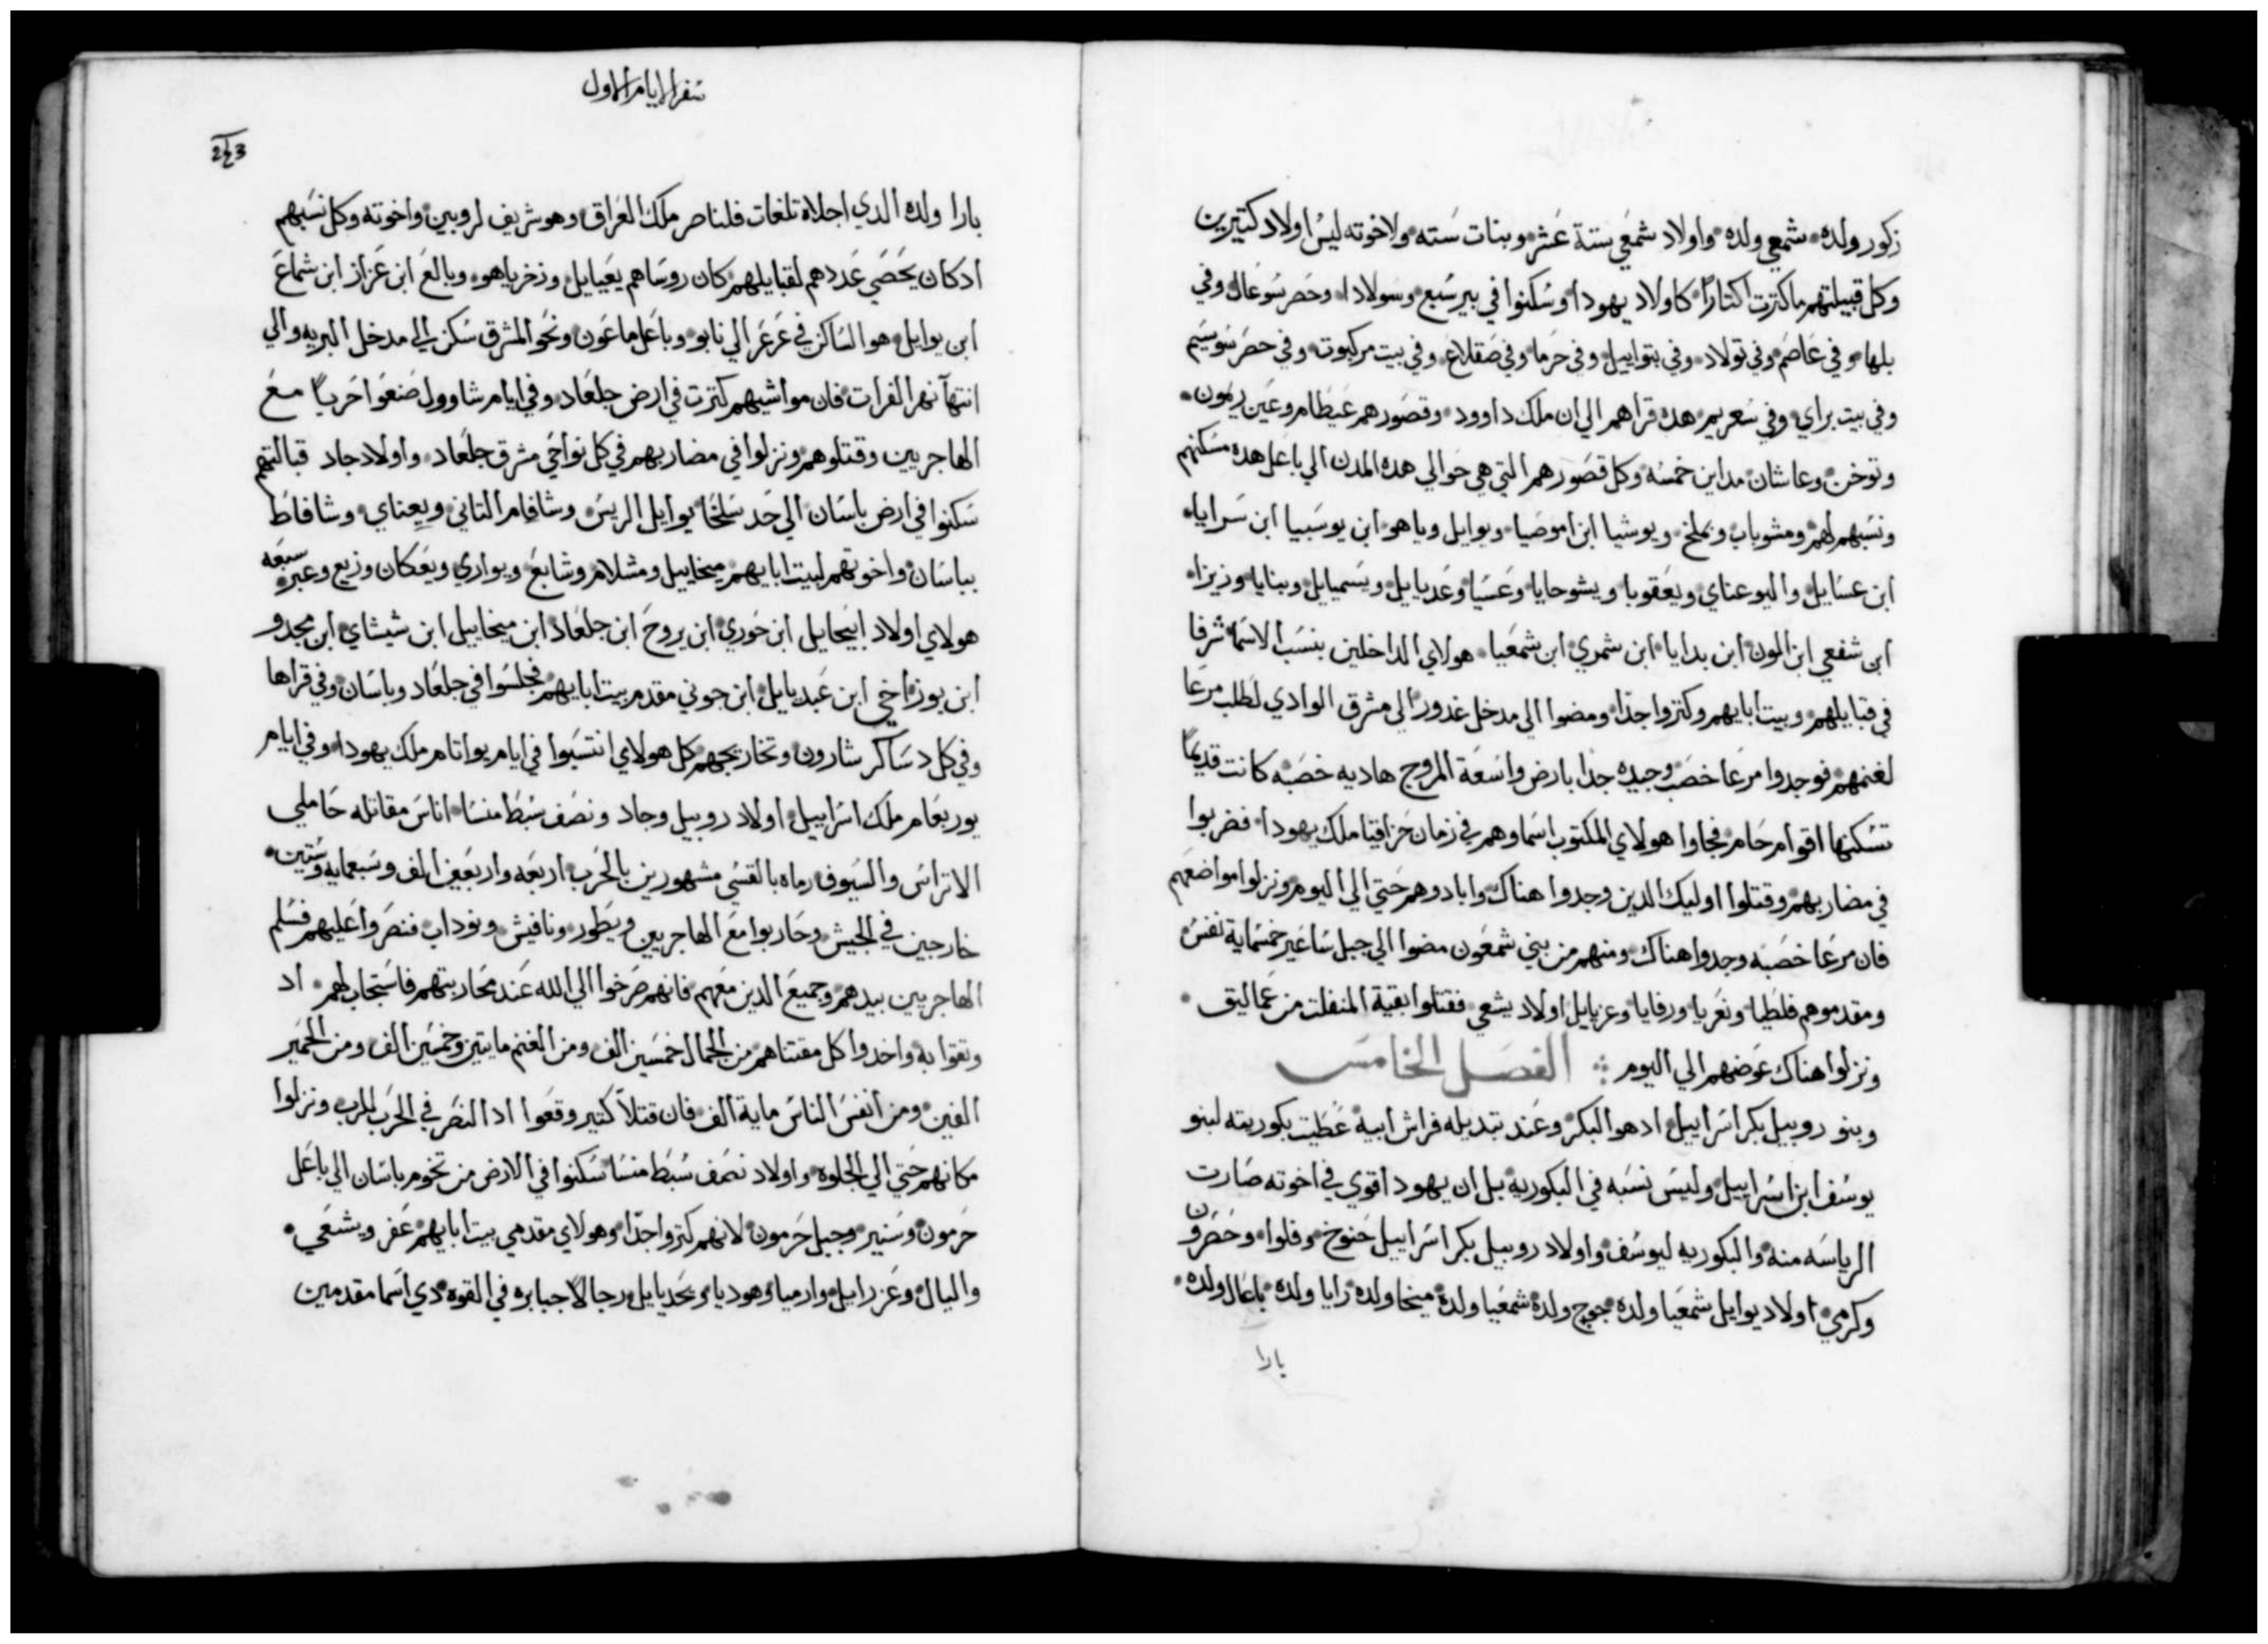 زكور ولده شمعي ولده واولاد شمعي ستة عشر وبنات سته ولاخوته ليس اولاد كتيرين
وكل قبيلتهم ماكترت اكتارًا كاولاد يهودا وسكنوا في بير سبع وسولادا وحصر سوعال وفي
بلها وفي عاصم وفي تولاد وفي بتواييل وفي حرما وفي صقلاع وفي بيت مركبوت وفي حصر سوسيم
وفي بيت براي وفي سعريم هده قراهم الي ان ملك داوود وقصورهم عيطام وعين ريمون
وتوخن وعاشان مداين خمسه وكل قصورهم التي هي حوالي هده المدن الي باعل هده مسكنهم
ونسبهم لهم ومشوباب ويملخ ويوشيا ابن اموصيا ويوايل وياهو ابن يوسبيا ابن سرايا
ابن عسايل واليوعناي ويعقوبا ويشوحايا وعسيا وعديايل ويسميايل وبنايا وزيزا
ابن شفعي ابن الون ابن يدايا ابن شمري ابن شمعيا هولاي الداخلين بنسب الاسما شرفا
في قبايلهم وبيت ابايهم وكتروا جدا ومضوا الي مدخل غدور الي مشرق الوادي لطلب مرعا
لغنمهم فوجدوا مرعا خصب وجيده جدا بارض واسعة المروج هاديه خصبه كانت قديمًا
تسكنها اقوام حام فجاوا هولاي المكتوب اسماوهم في زمان حزاقيا ملك يهودا فضربوا
في مضاربهم وقتلوا اوليك الدين وجدوا هناك وابادوهم حتي الي اليوم ونزلوا مواضعهم
فان مرعا خصبه وجدوا هناك ومنهم من بني شمعون مضوا الي جبل ساعير خمسماية نفس
ومقدموهم فلطيا ونعريا ورفايا وعزيايل اولاد يشعي فقتلوا بقية المنفلت من عماليق
ونزلوا هناك عوضهم الي اليوم الفصل الخامس
وبنو روبيل بكر اسراييل ادهو البكر وعند تبديله فراش ابيه عطيت بكوريته لبنو
يوسف ابن اسراييل وليس نسبه في البكوريه بل ان يهودا قوي في اخوته صارت
الرياسه منه والبكوريه ليوسف واولاد روبيل بكر اسراييل حنوخ وفلوا وحصرون
وكرمي اولاد يوايل شمعيا ولده جوج ولده شمعيا ولده ميخا ولده رايا ولده باعال ولده
بارا
سفر الايام الاول
243
بارا ولده الدي اجلاه تلغات فلناصر ملك العراق وهو شريف لروبين واخوته وكل نسبهم
ادكان يحصي عددهم لقبايلهم كان روساهم يعيايل وزخرياهو وبالع ابن عزاز ابن شماع
ابن يوايل هو الساكن في عرعر الي نابو وباعل ماعون ونحو المشرق سكن الي مدخل البريه والي
انتهآ نهر الفرات فان مواشيهم كترت في ارض جلعاد وفي ايام شاوول صنعوا حربًا مع
الهاجريين وقتلوهم ونزلوا في مضاربهم في كل نواحي مشرق جلعاد واولاد جاد قبالتهم
سكنوا في ارض باسان الي حد سلخا يوايل الريس وشافام التاني ويعناي وشافاط
بباسان واخوتهم لبيت ابايهم ميخاييل ومشلام وشابع ويواري ويعكان وزيع وعبر سبعه
هولاي اولاد ابيحايل ابن حوري ابن يروح ابن جلعاد ابن ميخاييل ابن شيشاي ابن يحدو
ابن بوز اخي ابن عبديايل ابن جوني مقدم بيت ابايهم فجلسوا في جلعاد وباسان وفي قراها
وفي كل دساكر شارون وتخاريجهم كل هولاي انتسبوا في ايام يواتام ملك يهودا وفي ايام
يوربعام ملك اسراييل اولاد روبيل وجاد ونصف سبط منسا اناس مقاتله حاملي
الاتراس والسيوف رماه بالقسي مشهورين بالحرب اربعه واربعين الف وسبعمايه وستين
خارجين في الجيش وحاربوا مع الهاجريين ويطور ونافيش ونوداب فنصروا عليهم فسلم
الهاجريين بيدهم وجميع الدين معهم فانهم صرخوا الي الله عند محاربتهم فاستجاب لهم اد
وتقوا به واخدوا كل مقتناهم من الجمال خمسين الف ومن الغنم مايتين وخمسين الف ومن الحمير
الفين ومن انفس الناس ماية الف فان قتلاً كتير وقعوا ادا النصر في الحرب للرب ونزلوا
مكانهم حتي الي الجلوه واولاد نصف سبط منسا سكنوا في الارض من تخوم باسان الي باعل
حرمون وسنير وجبل حرمون لانهم كتروا جدًا وهولاي مقدمي بيت ابايهم عفر ويشعي
واليال وعزرايل وارميا وهوديا ويحديايل رجالاً جبابره في القوه دي اسما مقدمين